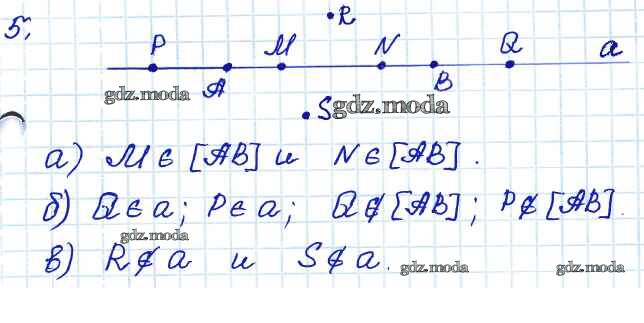 5.
R
P M N Q a
A B
gdz.moda
S gdz.moda
а) M ∈ [AB] и N ∈ [AB].
б) Q ∈ a; P ∈ a; Q ∉ [AB]; P ∉ [AB]
gdz.moda
в) R ∉ a и S ∉ a.
gdz.moda gdz.moda